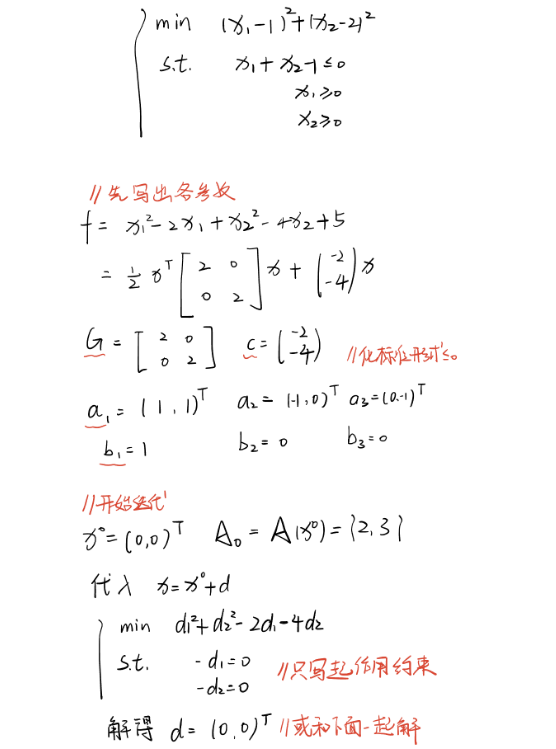 min (x₁-1)²+(x₂-2)²
s.t. x₁+x₂-1≤0
x₁≥0
x₂≥0
//先写出各参数
f = x₁²-2x₁+x₂²-4x₂+5
= 1/2 xᵀ [2 0; 0 2] x + (-2; -4) x
G = [2 0; 0 2] c = (-2; -4) //化标准形式≤0
a₁ = (1, 1)ᵀ a₂ = (-1, 0)ᵀ a₃ = (0,-1)ᵀ
b₁ = 1 b₂ = 0 b₃ = 0
//开始迭代
x⁰ = (0,0)ᵀ A₀ = A(x⁰) = {2,3}
代入 x = x⁰+d
min d₁²+d₂²-2d₁-4d₂
s.t. -d₁=0 //只写起作用约束
-d₂=0
解得 d = (0,0)ᵀ //或和下面一起解